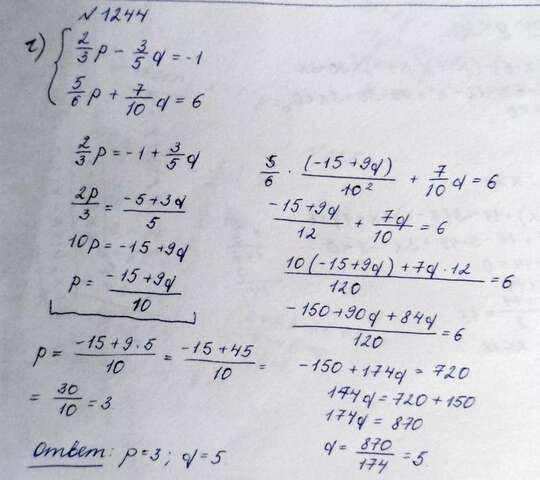 №1244
г) { 2/3 p - 3/5 q = -1
5/6 p + 7/10 q = 6
2/3 p = -1 + 3/5 q
2p/3 = -5+3q/5
10p = -15 + 9q
p = -15+9q/10
5/6 · (-15+9q)/10² + 7/10 q = 6
-15+9q/12 + 7q/10 = 6
10(-15+9q)+7q·12/120 = 6
-150+90q+84q/120 = 6
-150+174q = 720
174q = 720+150
174q = 870
q = 870/174 = 5.
p = -15+9·5/10 = -15+45/10 =
= 30/10 = 3
Ответ: p=3; q=5.